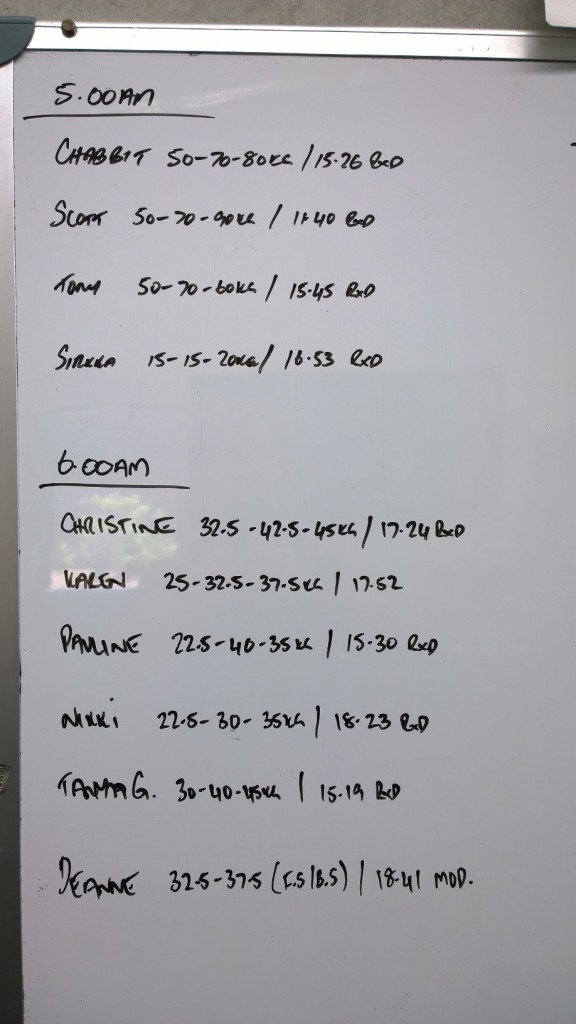 5.00AM
CHABBIT 50-70-80KG / 15.26 RxD
SCOTT 50-70-90KG / 11.40 RxD
TONY 50-70-60KG / 15.45 RxD
SIRKKA 15-15-20KG / 16.53 RxD
6.00AM
CHRISTINE 32.5-42.5-45KG / 17.24 RxD
KAREN 25-32.5-37.5KG / 17.52
PAULINE 22.5-40-35KG / 15.30 RxD
NIKKI 22.5-30-35KG / 18.23 RxD
G. 30-40-45KG / 15.19 RxD
DEANNE 32.5-37.5 (F.S/B.S) / 18.41 MOD.